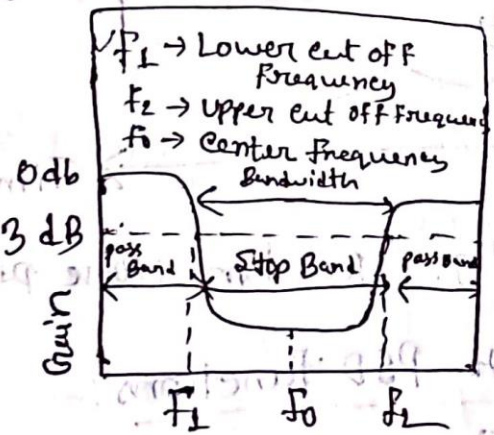 f1 → Lower cut off
frequency
f2 → upper cut off Frequen
fo → Center frequency
Bandwidth
0db
3 dB
pass
Band
Stop Band
pass Band
Gain
F1
fo
f2